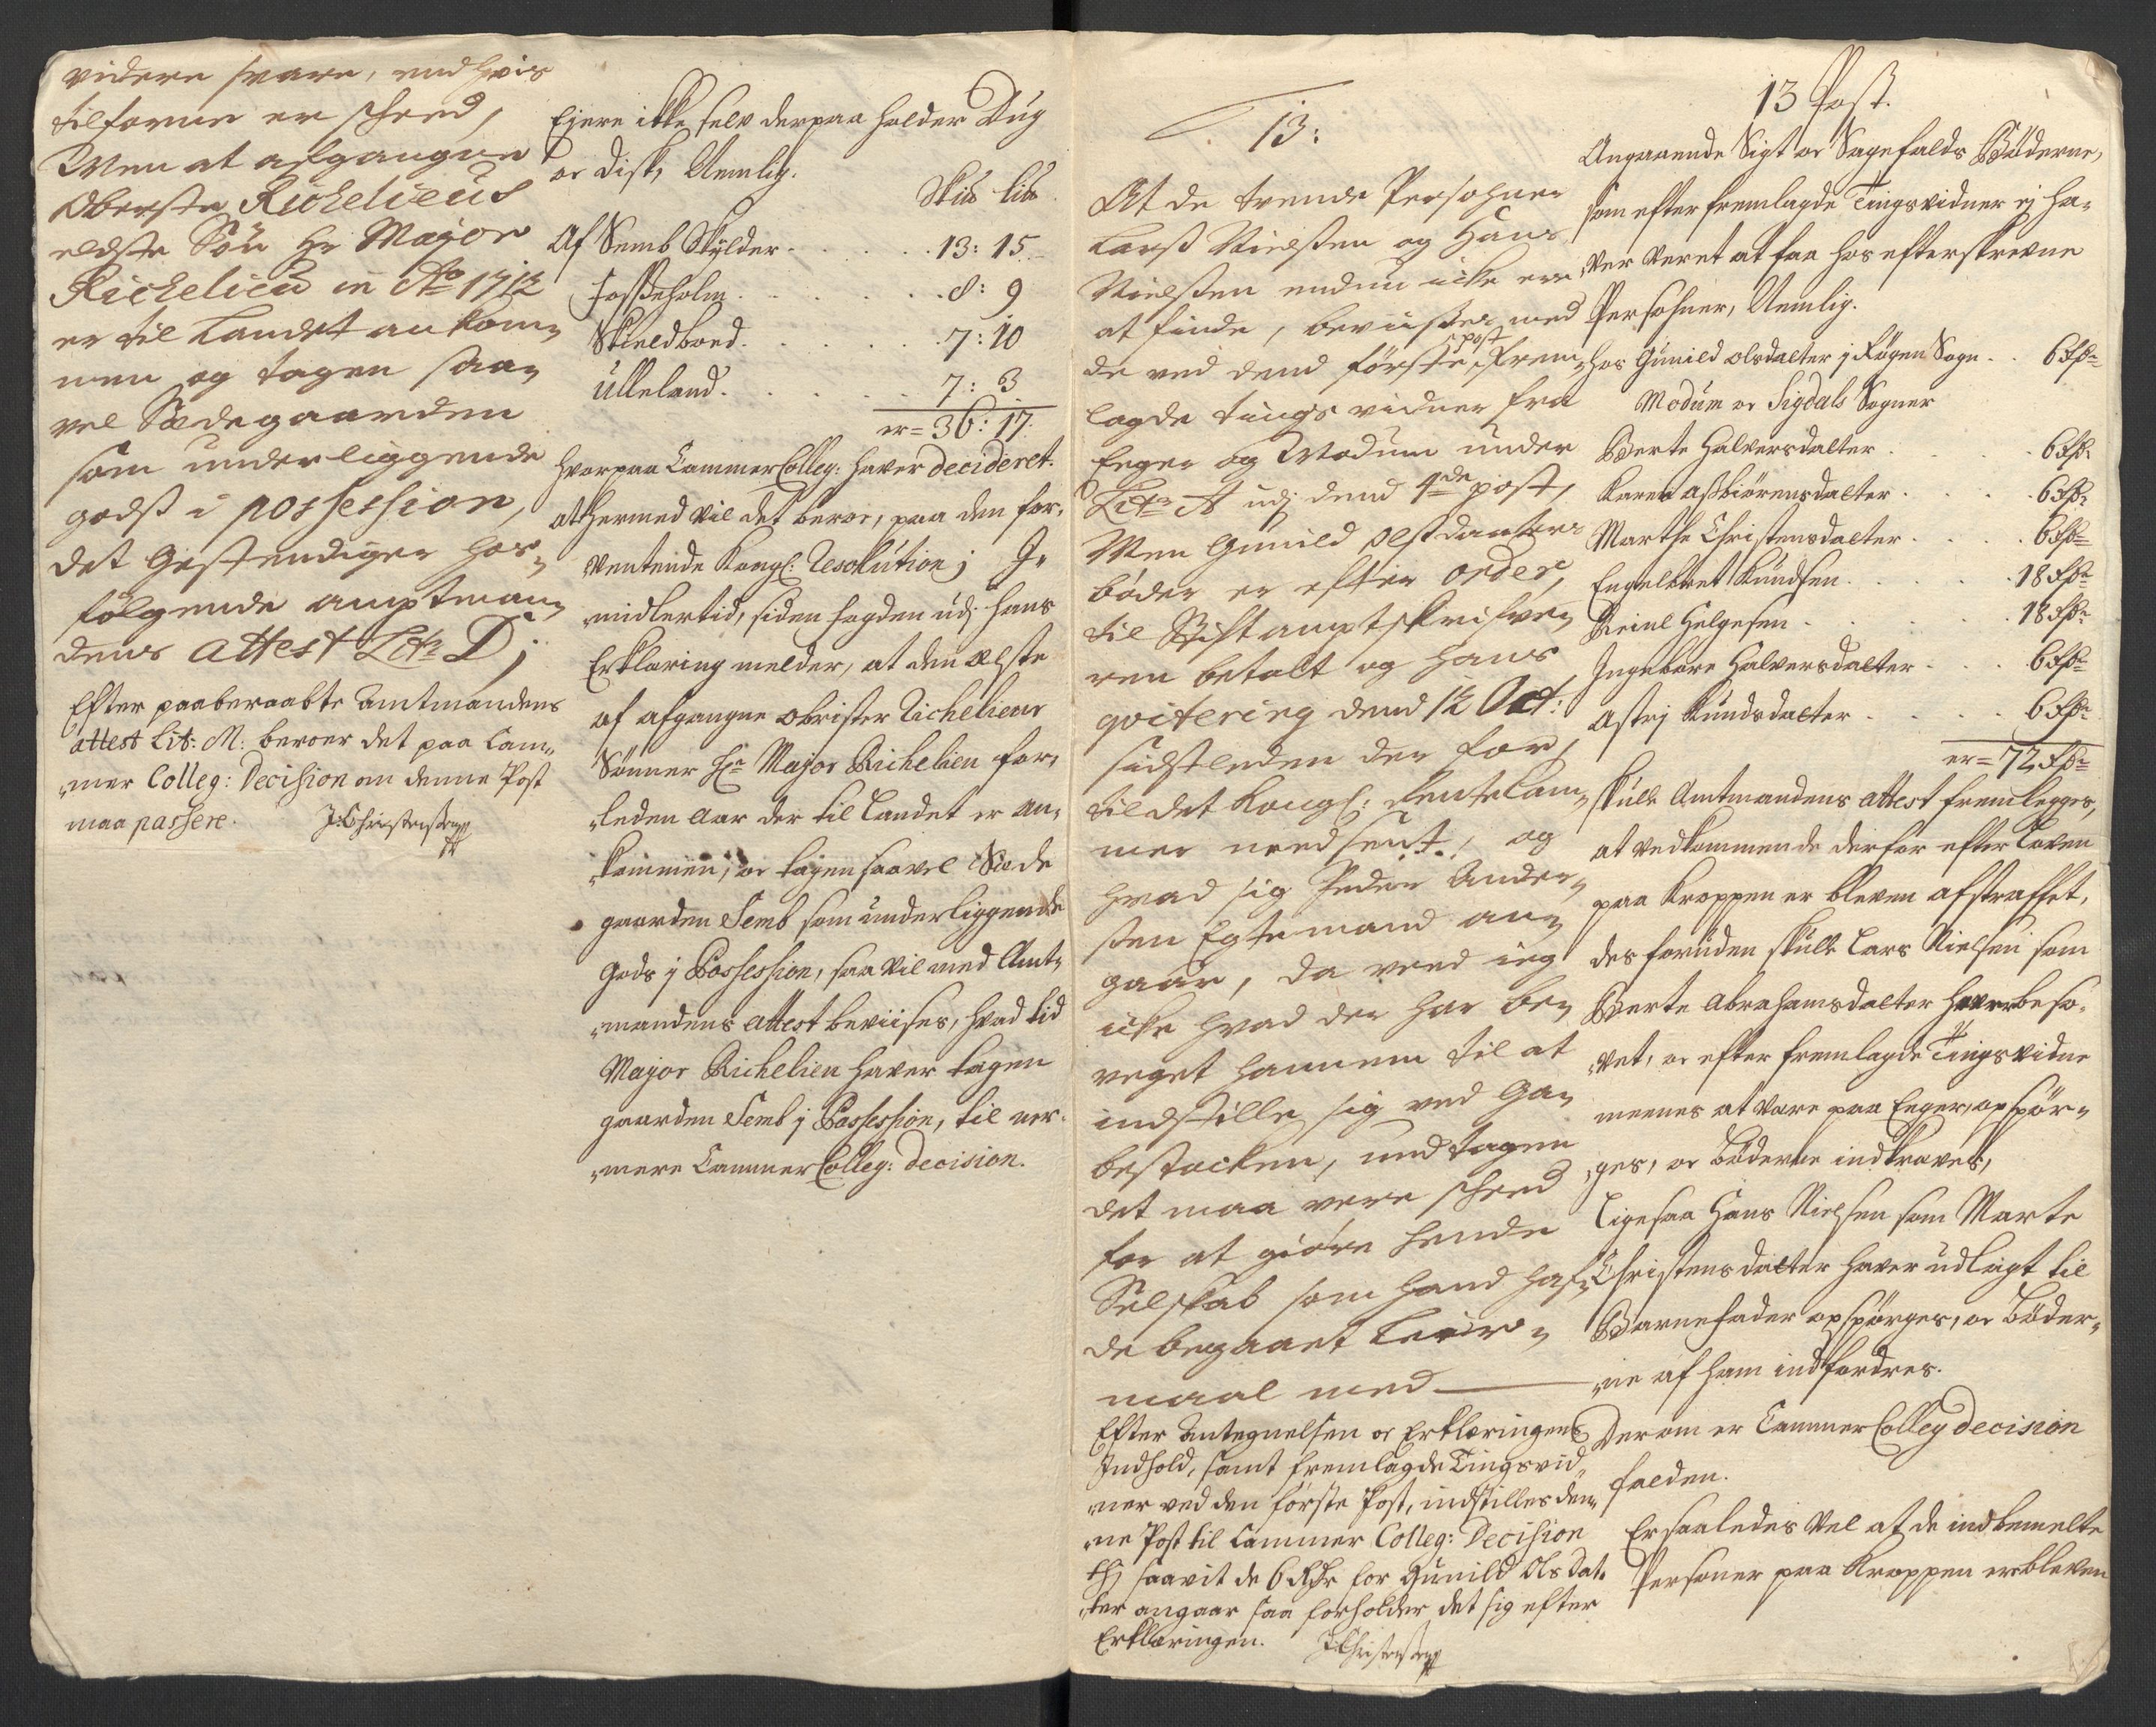 videre svare, end hvis
tilforne er scheed,
Men at afgangne
Oberste Richelieus
eldste Sön Hr Major
Richelieu in Ao 1712
er til Landet ankom„
men og tagen saa„
vel Sædegaarden
som underliggende
gods i possession,
det Gestendiger hos„
fölgende amptman„
dens attest Litr D;
Efter paaberaabte Amtmandens
attest Lit: M: beroer det paa Cam„
„mer Colleg: Decision om denne Post
maa passere. J: Christensen
Ejere ikke selv derpaa holder Dug
oc Disk, Nemlig.
Skib lib
Af Semb Skylder . . . 13: 15
Fosseholm . . . 8: 9
Skieldbred . . . 7: 10
Ulleland . . . 7: 3
er = 36: 17:
hvorpaa Cammer Colleg: haver decideret.
at hermed vil det beroe, paa den for„
„ventende Kongl: Resolution; I„
„midlertid, siden fogden udj hans
Erklæring melder, at den ælste
af afgangne obrister Richelieus
Sönner Hr Major Richelieu for„
„leden Aar der til Landet er an„
„kommen, oc tagen saavel Sæde
gaarden Semb som underliggende
gods j Possession, saa vil med Amt„
„mandens attest beviises, hvad tid
Major Richelieu haver tagen
gaarden Semb j Possession, til ner„
„mere Cammer Colleg: decision.
13:
At de tvende Persohner
Larss Nielssen og Hans
Nielssen endnu icke ere
at finde, beviisses med
de ved dend förste post frem„
lagde tings vidner fra
Eeger og Modum under
Litr A udj dend 4de post,
Men Gunild Olssdaatters
böder er efter order,
til Stiftamptskrifve„
ren betalt og hans
qvitering dend 12 Oct:
sidstleden der for,
til det Kongl: Rente Cam„
mer needsent, og
hvad sig Peder Ander„
ssen Egtemand an„
gaar, da veed ieg
icke hvad der har be„
veget hannem til at
indstille sig ved Ga„
bestocken, undtagen
det maa vere scheed
for at giöre hende
Selskab som hand haf„
de begaaet Leier„
maal med
Efter Antegnelsen oc Erklæringens
Indhold, samt fremlagde Tingsvid„
„ner ved den förste Post, indstilles den„
„ne Post til Cammer Colleg: Decision
Thj saavit de 6 Rdr for Gunild Ols dat„
„ter angaar saa forholder det sig efter
Erklæringen. J: Christensen
13 Post.
Angaaende Sigt oc Sagefalds Böderne,
som efter fremlagde Tingsvidner ej ha„
„ver veret at faa hos efterskrevne
Persohner, Nemlig.
hos Gunild olsdatter j Røgen Sogn . . 6 Rdr
Modum oc Sigdals Sogner
Berte Halversdatter . . . 6 Rdr
Karen Asbiörnsdatter . . . 6 Rdr
Marthe Christensdatter . . . 6 Rdr
Engelbret Knudsen . . . 18 Rdr
Reinl Helgesen . . . 18 Rdr
Ingebore Halversdatter . . . 6 Rdr
Astrj Knudsdatter . . . 6 Rdr
er = 72 Rdr
skulle Amtmandens attest fremlegges,
at vedkommende derfor efter Loven
paa Kroppen er bleven afstraffet,
des foruden skulle Lars Nielsen som
Berte Abrahamsdatter haver beso„
„vet, oc efter fremlagde Tingsvidne
meenes at vare paa Eeger, opspör„
„ges, oc böderne indkræves,
Ligesaa Hans Nielsen som Marte
Christensdatter haver udlagt til
Barnefader opspörges, oc böder„
„ne af ham indfordres.
Derom er Cammer Colleg decision
falden.
Er saaledes vel at de indbemelte
Personer paa Kroppen er bleven